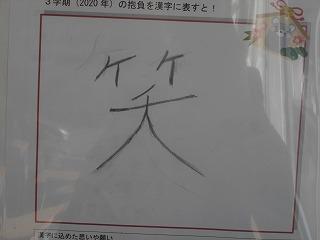 3学期（2020年）の抱負を漢字に表すと！
笑
漢字に込めた思いや願い